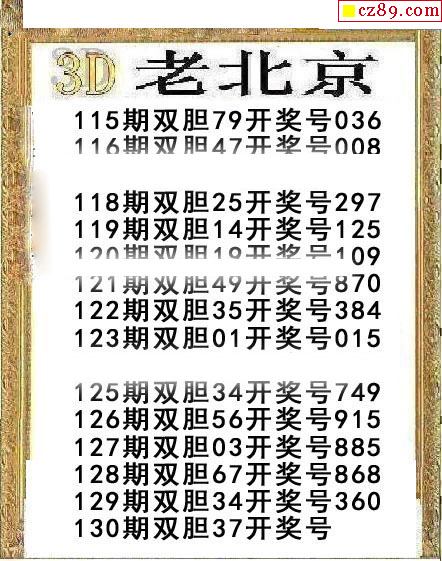 cz89.com
3D 老北京
115期双胆79开奖号036
116期双胆47开奖号008
118期双胆25开奖号297
119期双胆14开奖号125
120期双胆19开奖号109
121期双胆49开奖号870
122期双胆35开奖号384
123期双胆01开奖号015
125期双胆34开奖号749
126期双胆56开奖号915
127期双胆03开奖号885
128期双胆67开奖号868
129期双胆34开奖号360
130期双胆37开奖号